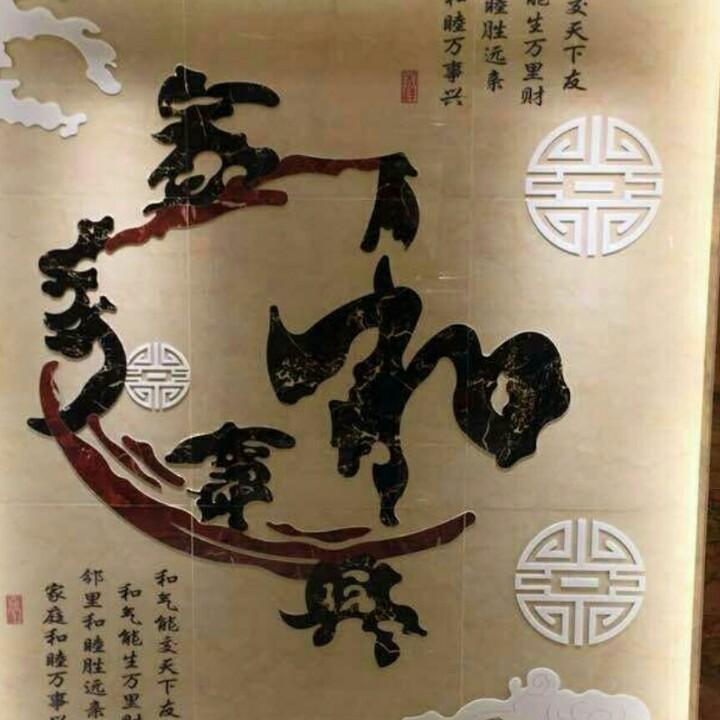 交天下友
能生万里财
睦胜远亲
和睦万事兴
家
和
萬
事
興
和气能交天下友
和气能生万里财
邻里和睦胜远亲
家庭和睦万事兴